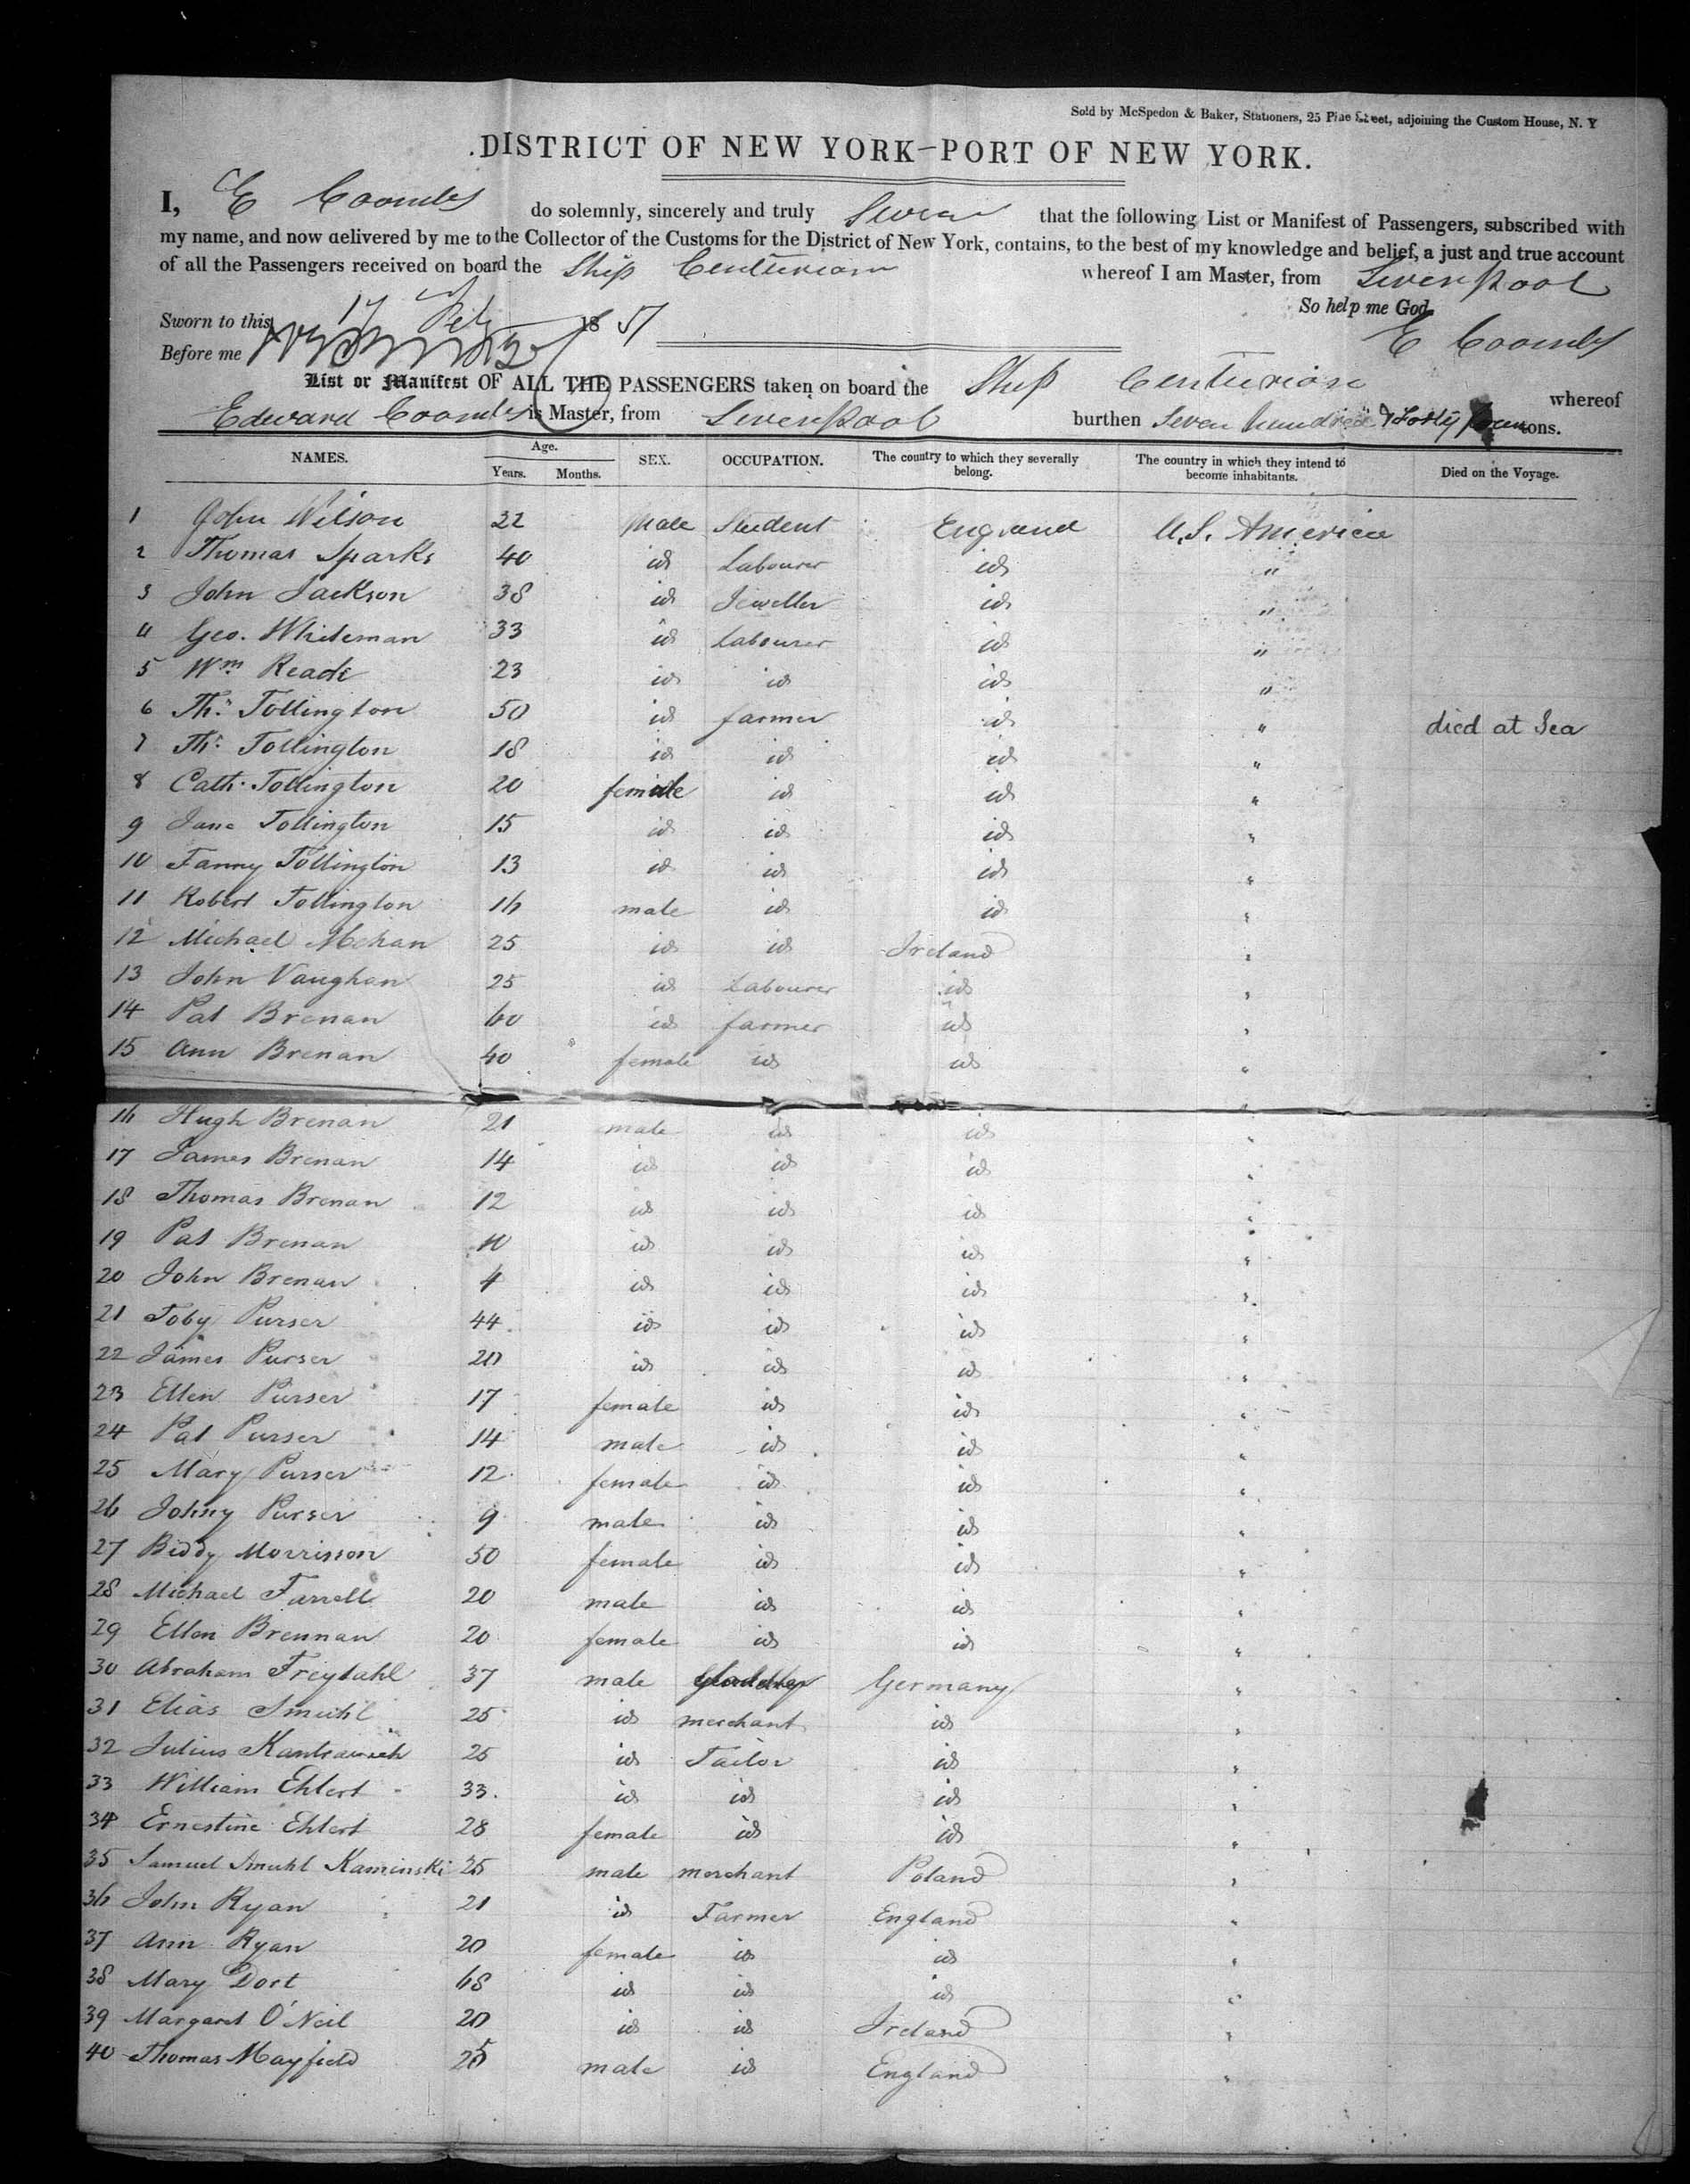 Sold by McSpedon & Baker, Stationers, 25 Pine Street, adjoining the Custom House, N. Y
DISTRICT OF NEW YORK—PORT OF NEW YORK.
I, E Coombs do solemnly, sincerely and truly Swear that the following List or Manifest of Passengers, subscribed with
my name, and now delivered by me to the Collector of the Customs for the District of New York, contains, to the best of my knowledge and belief, a just and true account
of all the Passengers received on board the Ship Centurion whereof I am Master, from Liverpool
So help me God.
Sworn to this 17 Feb 1851 E Coombs
Before me
List or Manifest OF ALL THE PASSENGERS taken on board the Ship Centurion whereof
Edward Coombs is Master, from Liverpool burthen Seven hundred & Forty tons.
NAMES. Age. Years. Months. SEX. OCCUPATION. The country to which they severally belong. The country in which they intend to become inhabitants. Died on the Voyage.
1 John Wilson 22 Male Student England U.S. America
2 Thomas Sparks 40 id Labourer id "
3 John Jackson 38 id Jeweller id "
4 Geo. Whiteman 33 id Labourer id "
5 Wm Reade 23 id id id "
6 Ths Tollington 50 id farmer id " died at Sea
7 Ths Tollington 18 id id id "
8 Cath. Tollington 20 female id id "
9 Jane Tollington 15 id id id "
10 Fanny Tollington 13 id id id "
11 Robert Tollington 16 male id id "
12 Michael Mehan 25 id id Ireland "
13 John Vaughan 25 id Labourer id "
14 Pat Brenan 60 id farmer id "
15 Ann Brenan 40 female id id "
16 Hugh Brenan 21 male id id "
17 James Brenan 14 id id id "
18 Thomas Brenan 12 id id id "
19 Pat Brenan 10 id id id "
20 John Brenan 4 id id id "
21 Toby Purser 44 id id id "
22 James Purser 20 id id id "
23 Ellen Purser 17 female id id "
24 Pat Purser 14 male id id "
25 Mary Purser 12 female id id "
26 Johny Purser 9 male id id "
27 Biddy Morrisson 50 female id id "
28 Michael Farrell 20 male id id "
29 Ellen Brennan 20 female id id "
30 Abraham Freytahl 37 male Germany "
31 Elias Smuhl 25 id merchant id "
32 Julius Kantrawich 25 id Tailor id "
33 William Ehlert 33 id id id "
34 Ernestine Ehlert 28 female id id "
35 Samuel Smuhl Kaminski 25 male merchant Poland "
36 John Ryan 21 id Farmer England "
37 Ann Ryan 20 female id id "
38 Mary Dort 68 id id id "
39 Margaret O'Neil 20 id id Ireland "
40 Thomas Mayfield 25 male id England "